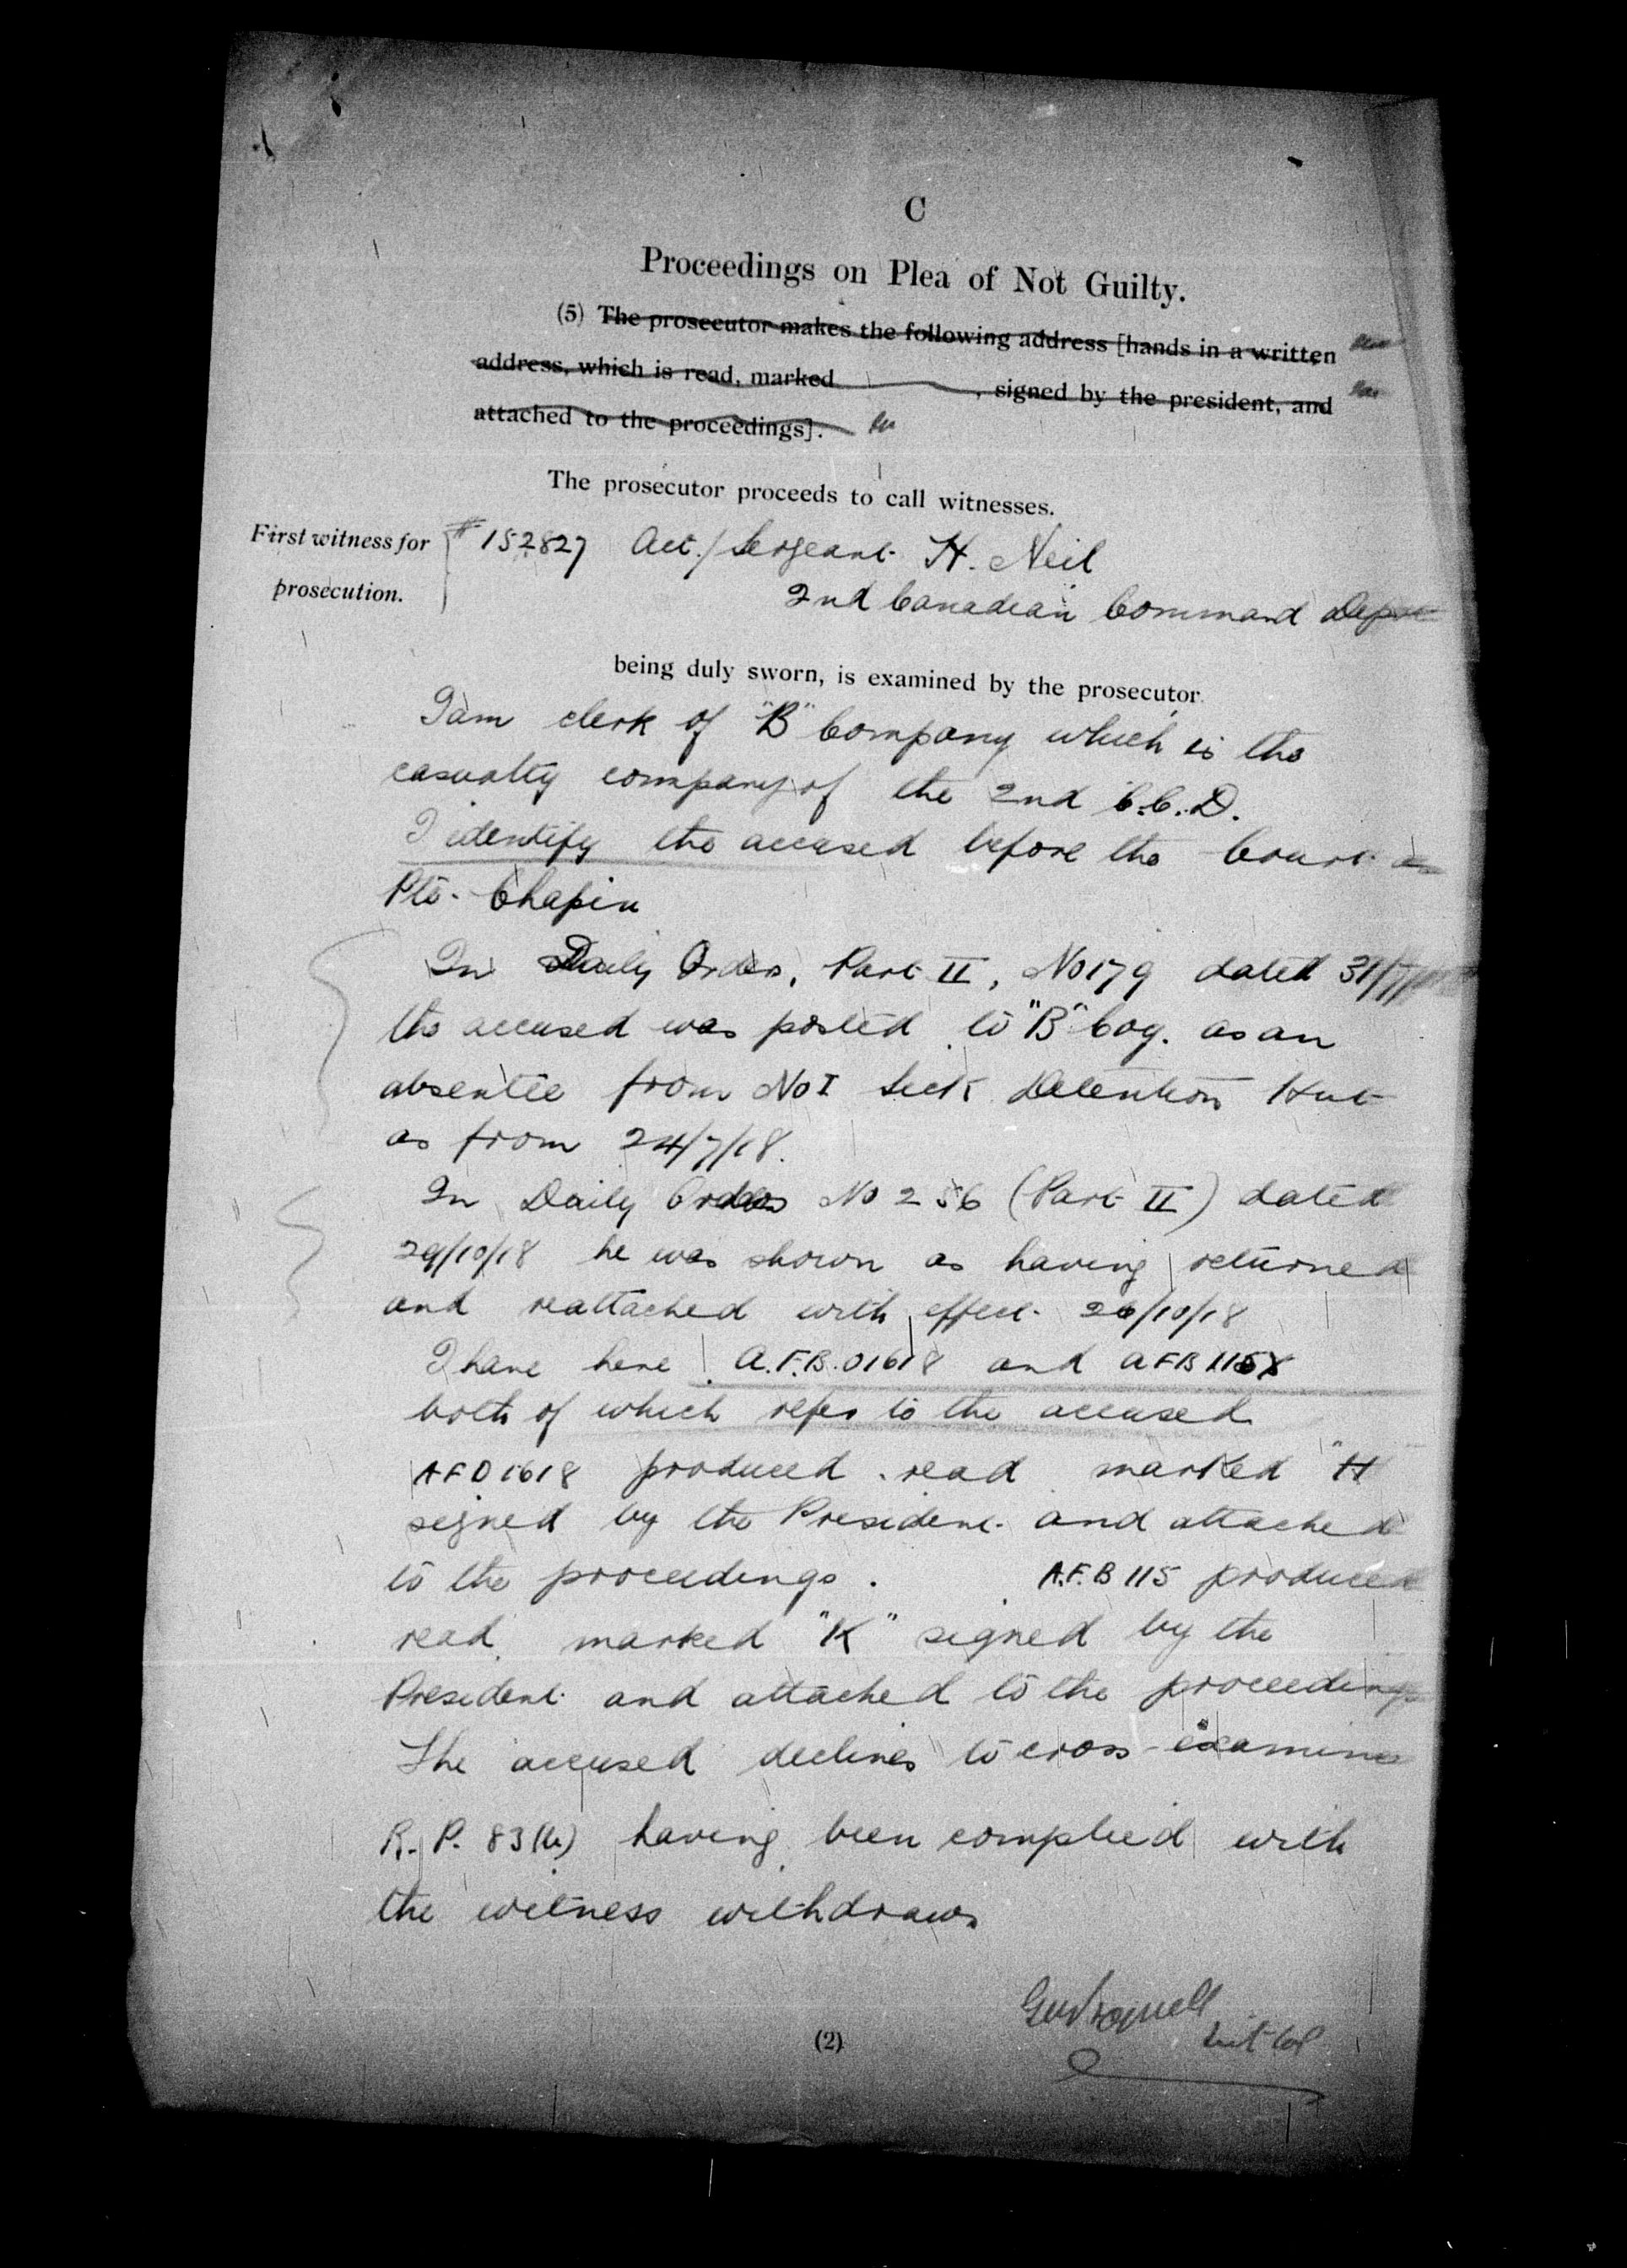 C
Proceedings on Plea of Not Guilty.
(5) The prosecutor makes the following address [hands in a written
address, which is read, marked , signed by the president, and
attached to the proceedings].
The prosecutor proceeds to call witnesses.
First witness for
prosecution.
# 152827 Act./Sergeant H. Neil
2nd Canadian Command Depot
being duly sworn, is examined by the prosecutor
I am clerk of "B" Company which is the
casualty company of the 2nd C.C.D.
I identify the accused before the Court as
Pte. Chapin
In Daily Orders, Part II, No 179 dated 31/7/
the accused was posted to "B" Coy. as an
absentee from No I Detention Hut
as from 24/7/18.
In Daily Orders No 256 (Part II) dated
29/10/18 he was shown as having returned
and reattached with effect 26/10/18
I have here A.F.B. 01618 and AFB 115
both of which refer to the accused
AFO 1618 produced. read marked "H
signed by the President and attached
to the proceedings. A.F.B 115 produced
read, marked "K" signed by the
President and attached to the proceedings
The accused declines to cross-examine
R.P. 83(b) having been complied with
the witness withdraws
(2)
Lieut Col